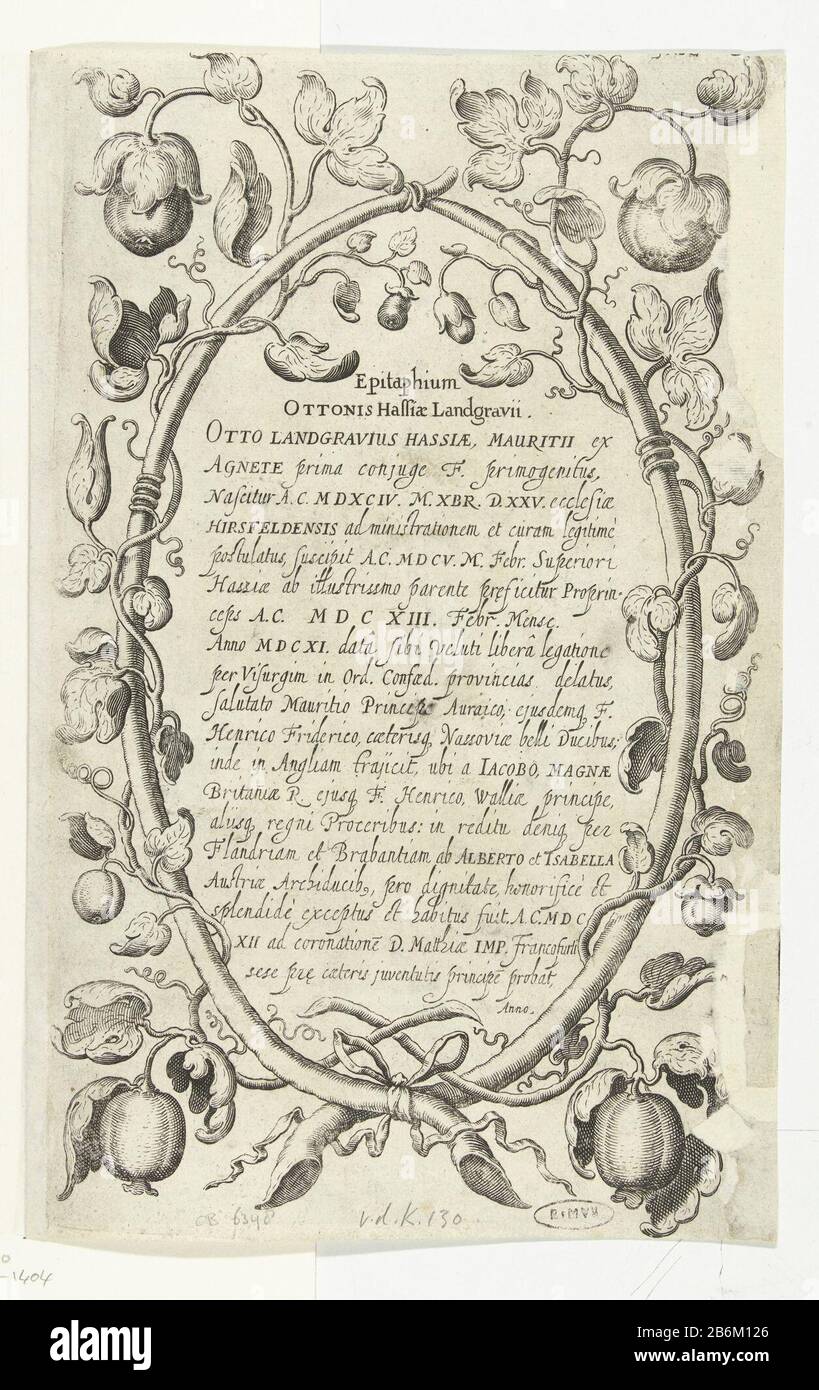 Epitaphium
OTTONIS Hassiæ Landgravii.
OTTO LANDGRAVIUS HASSIÆ, MAURITII ex
AGNETE prima conjuge F. primogenitus,
Nascitur A.C. MDXCIV. M. XBR. D. XXV. ecclesiæ
HIRSFELDENSIS administrationem et curam legitimè
postulatus, suscipit A.C. MDCV. M. Febr. Superiori
Hassiæ ab illustrissmo parente pręficitur Proprin-
ceps A.C. MDCXIII. Febr. Mense.
Anno MDCXI. data sibi veluti liberâ legatione
per Visurgim in Ord. Confœd. provincias delatus,
salutato Mauritio Principe Auraico, ejusdemq F.
Henrico Friderico, cæterisq Nassoviæ belli Ducibus;
inde in Angliam trajicit, ubi a IACOBO, MAGNÆ
Britaniæ R. ejusq F. Henrico, Walliæ principe,
aliisq regni Proceribus: in reditu deniq per
Flandriam et Brabantiam ab ALBERTO et ISABELLA
Austriæ Archiducib9, pro dignitate, honorificè et
splendidè exceptus et habitus fuit. A.C. MDC
XII ad coronationē D. Matthiæ IMP. Francofurti
sese prę cæteris juventutis principē probat,
Anno.
OB 6340 v.d.K. 130
-1404
alamy
Image ID: 2B6M126
www.alamy.com